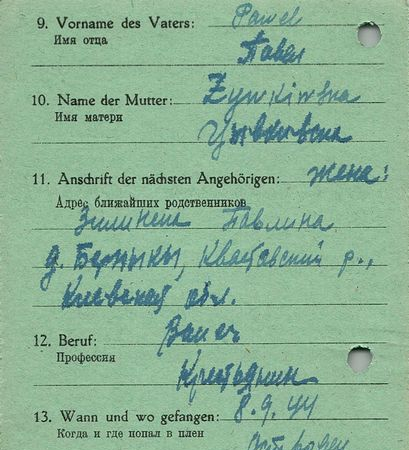 9. Vorname des Vaters: Pawel
Имя отца Павел
10. Name der Mutter:
Имя матери
11. Anschrift der nächsten Angehörigen: жена:
Адрес ближайших родственников
Павлина
д. р.,
Киевской обл.
12. Beruf: Bauer
Профессия
Крестьянин
13. Wann und wo gefangen: 8.9.44
Когда и где попал в плен